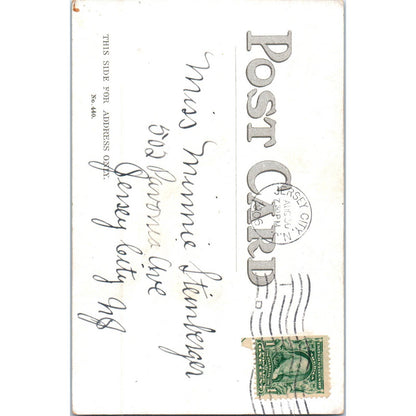 POST CARD
THIS SIDE FOR ADDRESS ONLY.
No. 440.
JERSEY CITY, N.J.
Miss Minnie Steinberger
502 Pavonia Ave
Jersey City NJ